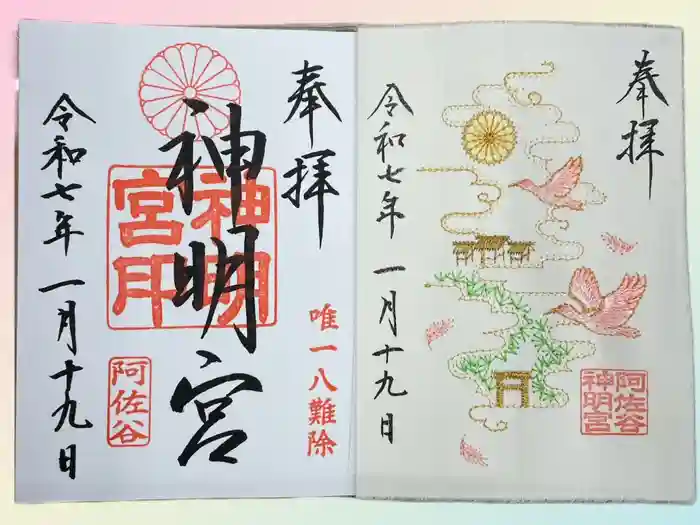 奉拝
神明宮
神明宮印
唯一八難除
令和七年 一月十九日
阿佐谷
奉拝
令和七年 一月十九日
阿佐谷
神明宮